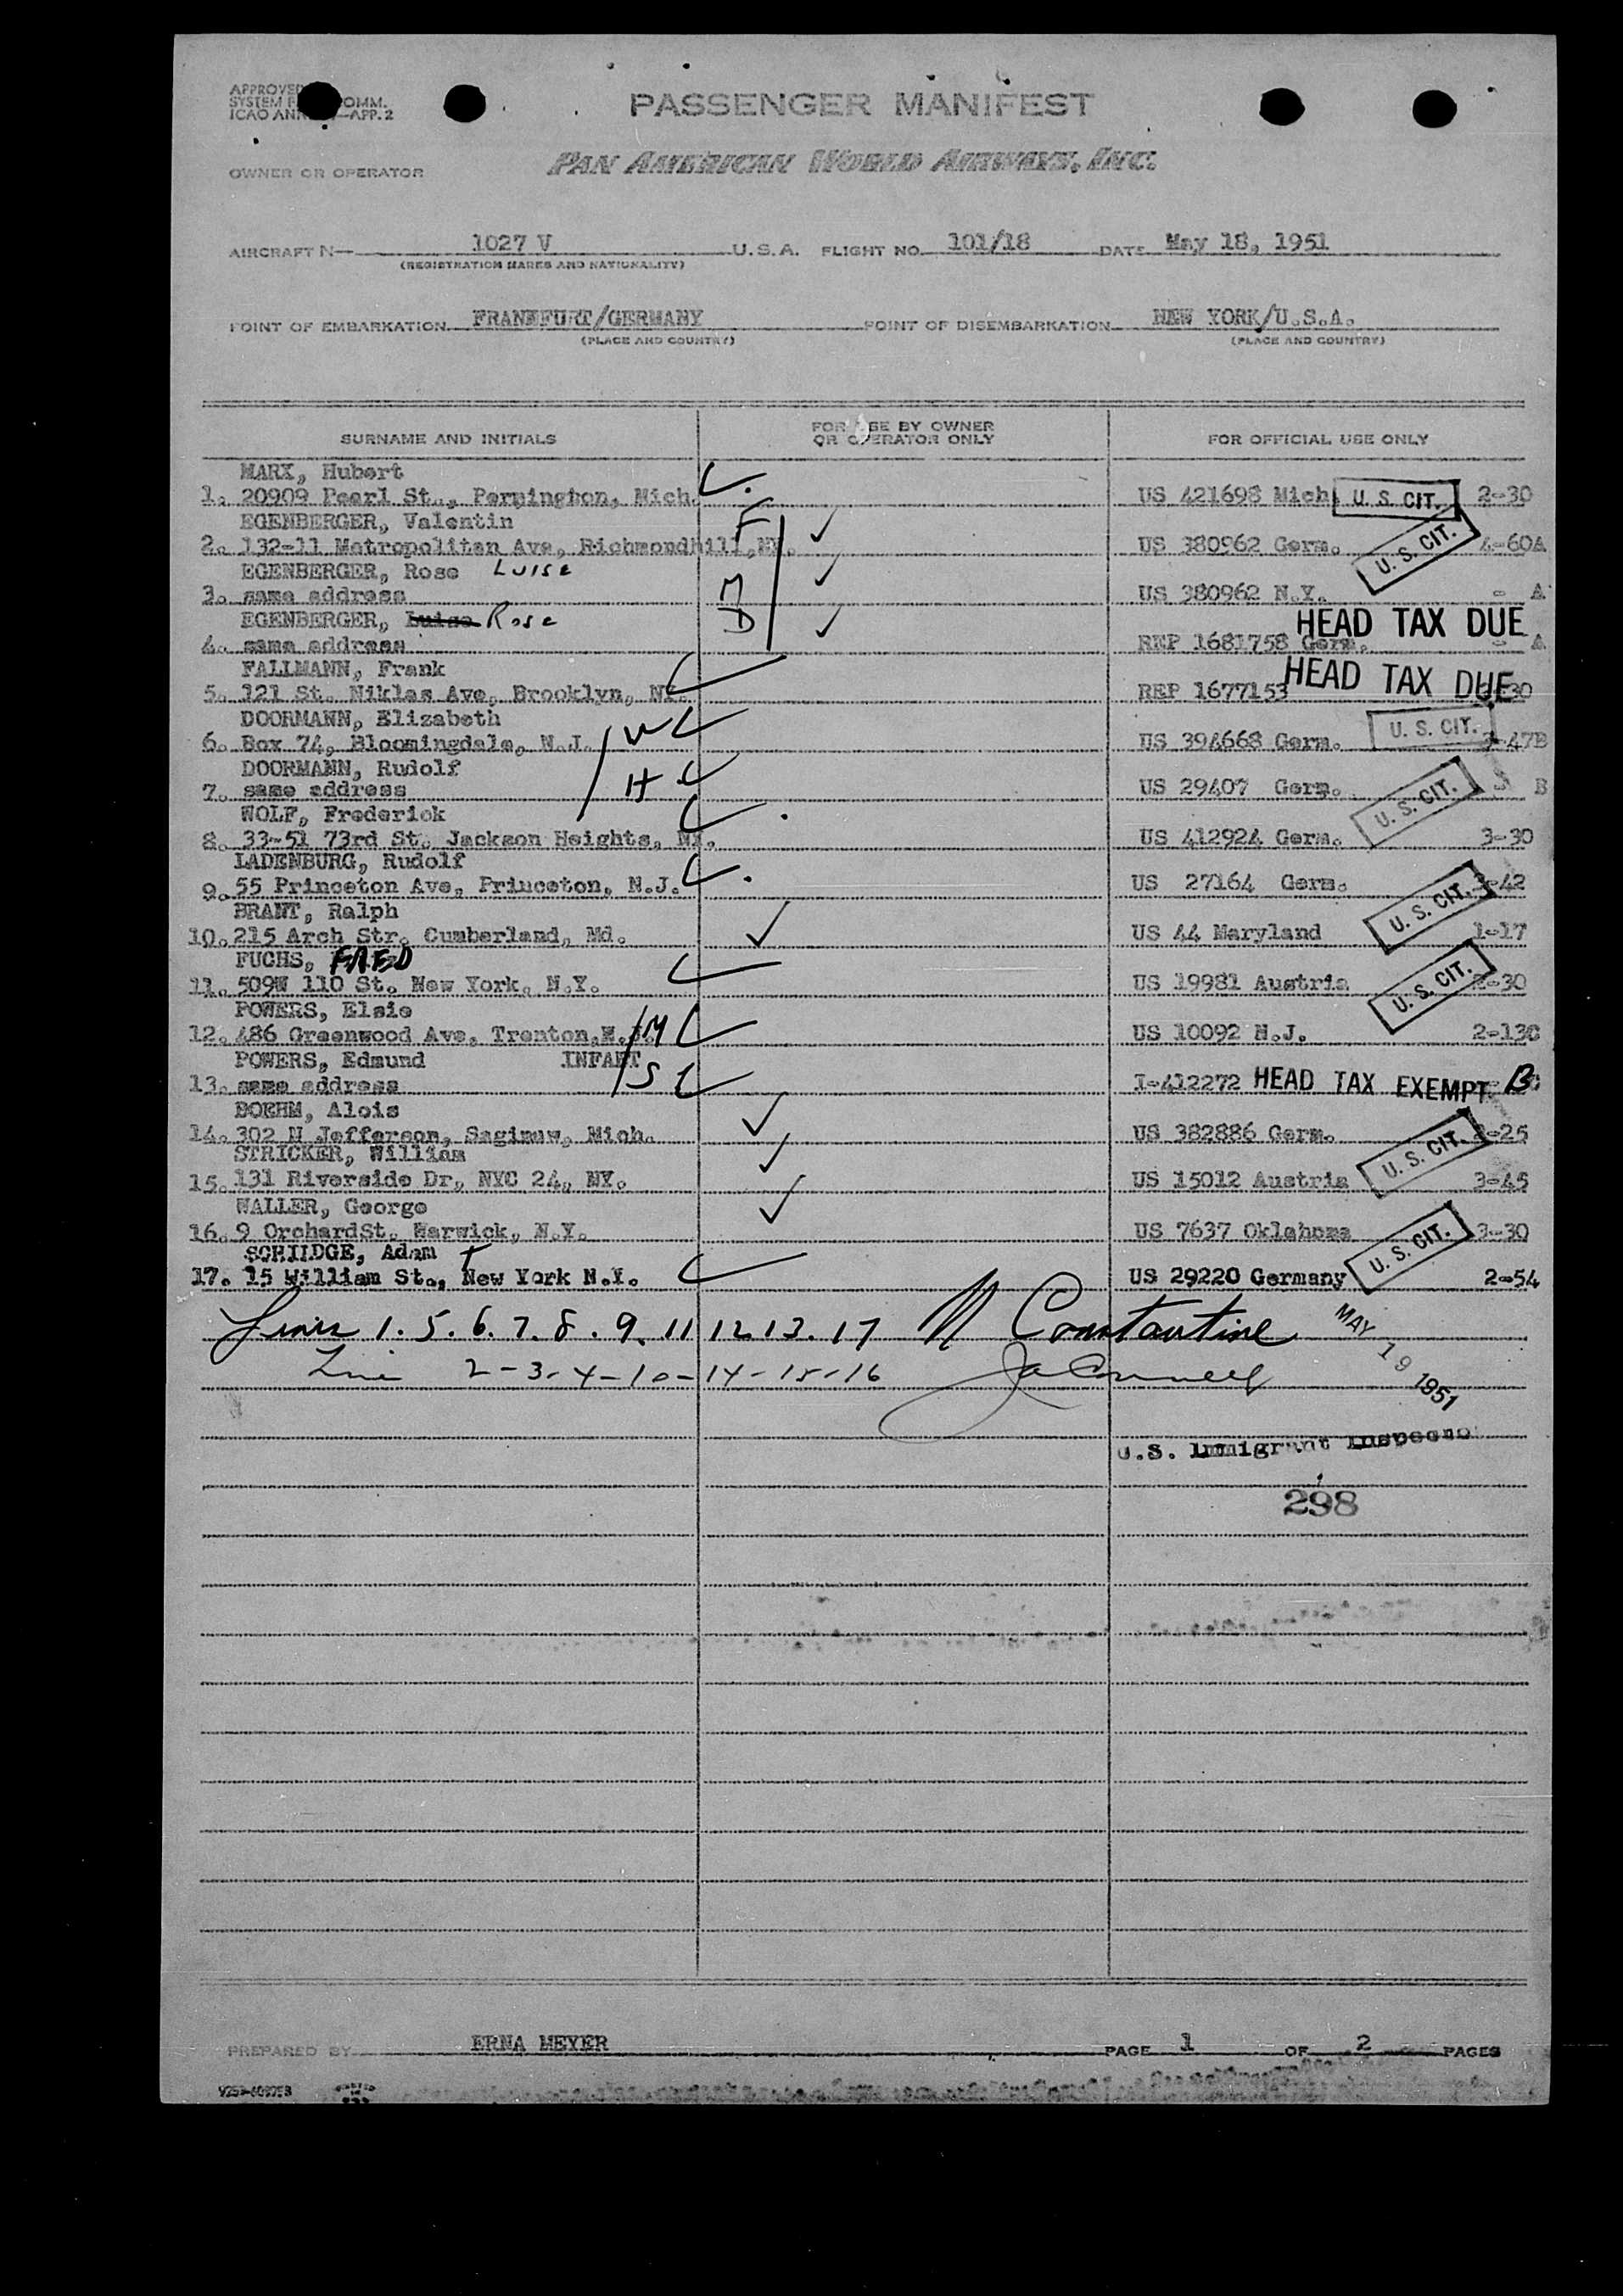 APPROVED
SYSTEM F OMM.
ICAO ANN —APP. 2
PASSENGER MANIFEST
OWNER OR OPERATOR
PAN AMERICAN WORLD AIRWAYS, INC.
AIRCRAFT N— 1027 V U.S.A. FLIGHT NO. 101/18 DATE May 18, 1951
(REGISTRATION MARKS AND NATIONALITY)
POINT OF EMBARKATION FRANKFURT/GERMANY POINT OF DISEMBARKATION NEW YORK/U.S.A.
(PLACE AND COUNTRY) (PLACE AND COUNTRY)
SURNAME AND INITIALS FOR USE BY OWNER OR OPERATOR ONLY FOR OFFICIAL USE ONLY
MARX, Hubert
1. 20909 Pearl St., Ferpington, Mich. US 421698 Mich. U. S. CIT. 2-30
EGENBERGER, Valentin F
2. 132-11 Metropolitan Ave, Richmondhill, NY. US 380962 Germ. U. S. CIT. 4-60A
EGENBERGER, Rose Luise
3. same address M US 380962 N.Y. - A
EGENBERGER, Luise Rose D HEAD TAX DUE
4. same address REP 1681758 Germ. - A
FALLMANN, Frank HEAD TAX DUE
5. 121 St. Niklas Ave, Brooklyn, NY. REP 1677153 -30
DOORMANN, Elizabeth W
6. Box 74, Bloomingdale, N.J. US 394668 Germ. U. S. CIT. -47B
DOORMANN, Rudolf H
7. same address US 29407 Germ. U. S. CIT. B
WOLF, Frederick
8. 33-51 73rd St. Jackson Heights, NY. US 412924 Germ. 3-30
LADENBURG, Rudolf
9. 55 Princeton Ave, Princeton, N.J. US 27164 Germ. U. S. CIT. -42
BRANT, Ralph
10. 215 Arch Str. Cumberland, Md. US 44 Maryland 1-17
FUCHS, FRED
11. 509W 110 St. New York, N.Y. US 19981 Austria U. S. CIT. -30
POWERS, Elsie
12. 486 Greenwood Ave, Trenton, N.J. M US 10092 N.J. 2-13C
POWERS, Edmund INFANT
13. same address S I-412272 HEAD TAX EXEMPT B
BOEHM, Alois
14. 302 N Jefferson, Saginuw, Mich. US 382886 Germ. U. S. CIT. -25
STRICKER, William
15. 131 Riverside Dr, NYC 24, NY. US 15012 Austria 3-45
WALLER, George
16. 9 OrchardSt. Warwick, N.Y. US 7637 Oklahoma U. S. CIT. 3-30
SCHIIDGE, Adam
17. 15 William St., New York N.Y. US 29220 Germany 2-54
Lines 1. 5. 6. 7. 8. 9. 11 12 13. 17 N Constantine MAY 19 1951
Line 2-3-4-10-14-15-16
U.S. Immigrant Inspector
298
PREPARED BY ERNA MEYER PAGE 1 OF 2 PAGES